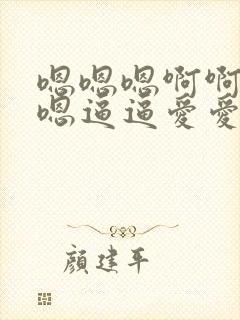 嗯嗯嗯啊啊
嗯逼逼爱爱
颜建平